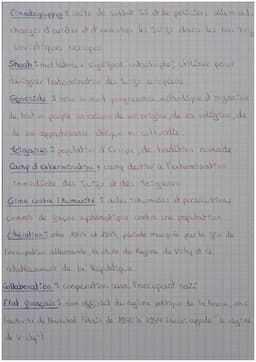 Einsatzgruppen : unité de soldat SS et de policiers allemands
chargés d'arrêter et d'exécuter les Juifs dans les territoires
soviétiques occupés
Shoah : mot hébreu signifiant "catastrophe", utilisé pour
désigner l'extermination des Juifs européens
Génocide : mise à mort programmée, méthodique et organisée
de tout un peuple en raison de son origine, de sa religion, de
de son appartenance ethnique ou culturelle.
Tsiganes : population d'Europe, de tradition nomade
Camp d'extermination : camp destiné à l'extermination
immédiate des Juifs et des Tsiganes
Crime contre l'humanité : actes inhumains et persécutions
commis de façon systématique contre une population
Libération : entre 1944 et 1945, période marquée par la fin de
l'occupation allemande, la chute du Régime de Vichy et le
rétablissement de la République
Collaboration : coopération avec l'occupant nazi
Etat français : nom officiel du régime politique de la France, sous
l'autorité du Maréchal Pétain de 1940 à 1944 (aussi appelé "le régime
de Vichy")